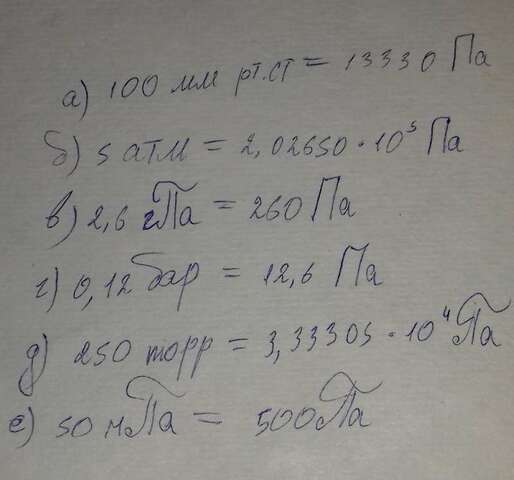 а) 100 мм рт.ст = 13330 Па
б) 5 атм = 2,02650 · 10⁵ Па
в) 2,6 гПа = 260 Па
г) 0,12 бар = 12,6 Па
д) 250 торр = 3,33305 · 10⁴ Па
е) 50 мПа = 500 Па